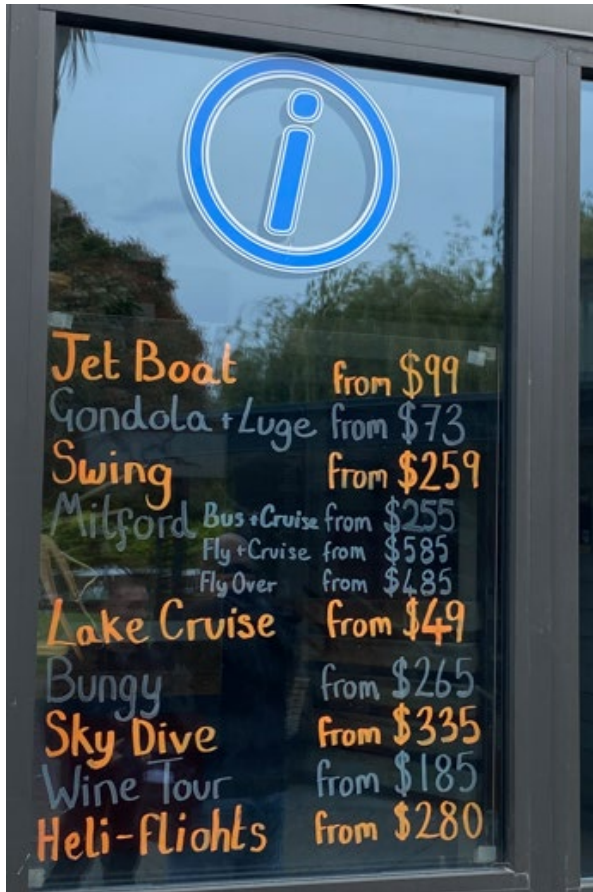 i
Jet Boat from $99
Gondola + Luge from $73
Swing from $259
Milford Bus + Cruise from $255
Fly + Cruise from $585
Fly Over from $485
Lake Cruise from $49
Bungy from $265
Sky Dive from $335
Wine Tour from $185
Heli-fliohts from $280